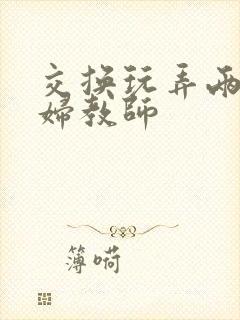 交换玩弄两
婦教師
簿嗬